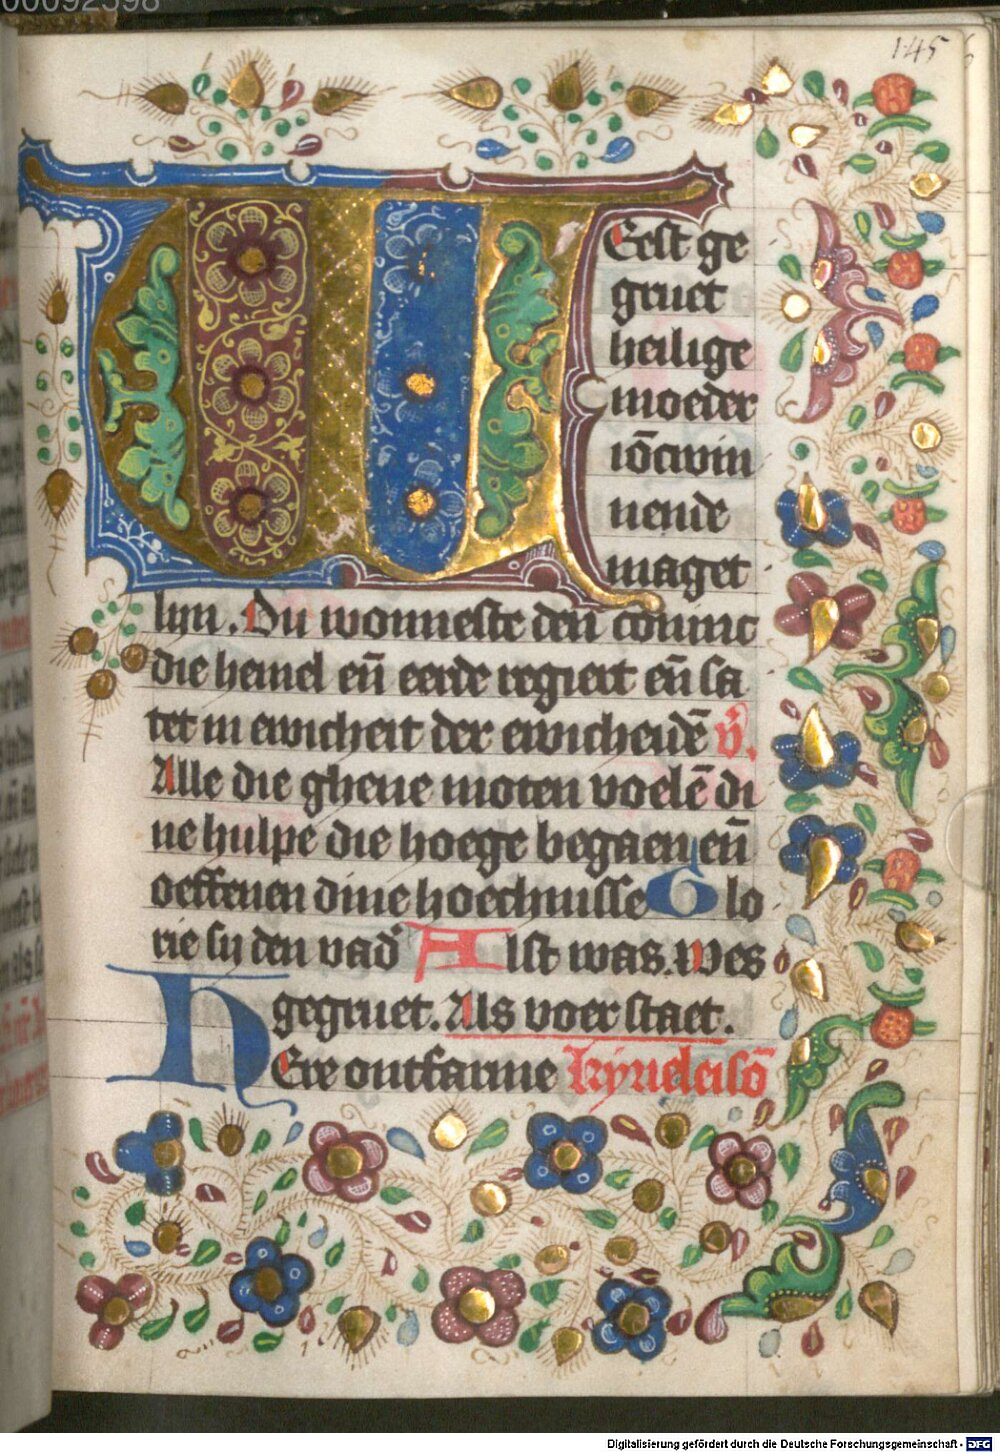 00092598
145
WEest ge
gruet
heilige
moeder
iōcwin
nende
maget
lyn. Du wonneste den coninc
die hemel eñ eerde regiert eñ sa
tet in ewicheit der ewicheidē v̄.
Alle die ghene moten voelē di
ne hulpe die hoege begaen eñ
oeffenen dine hoechnisse Glo
rie sy den vad Alst was. Wes
gegruet. Als voer staet.
HEre ontfarme kyrieleisō
Digitalisierung gefördert durch die Deutsche Forschungsgemeinschaft - DFG